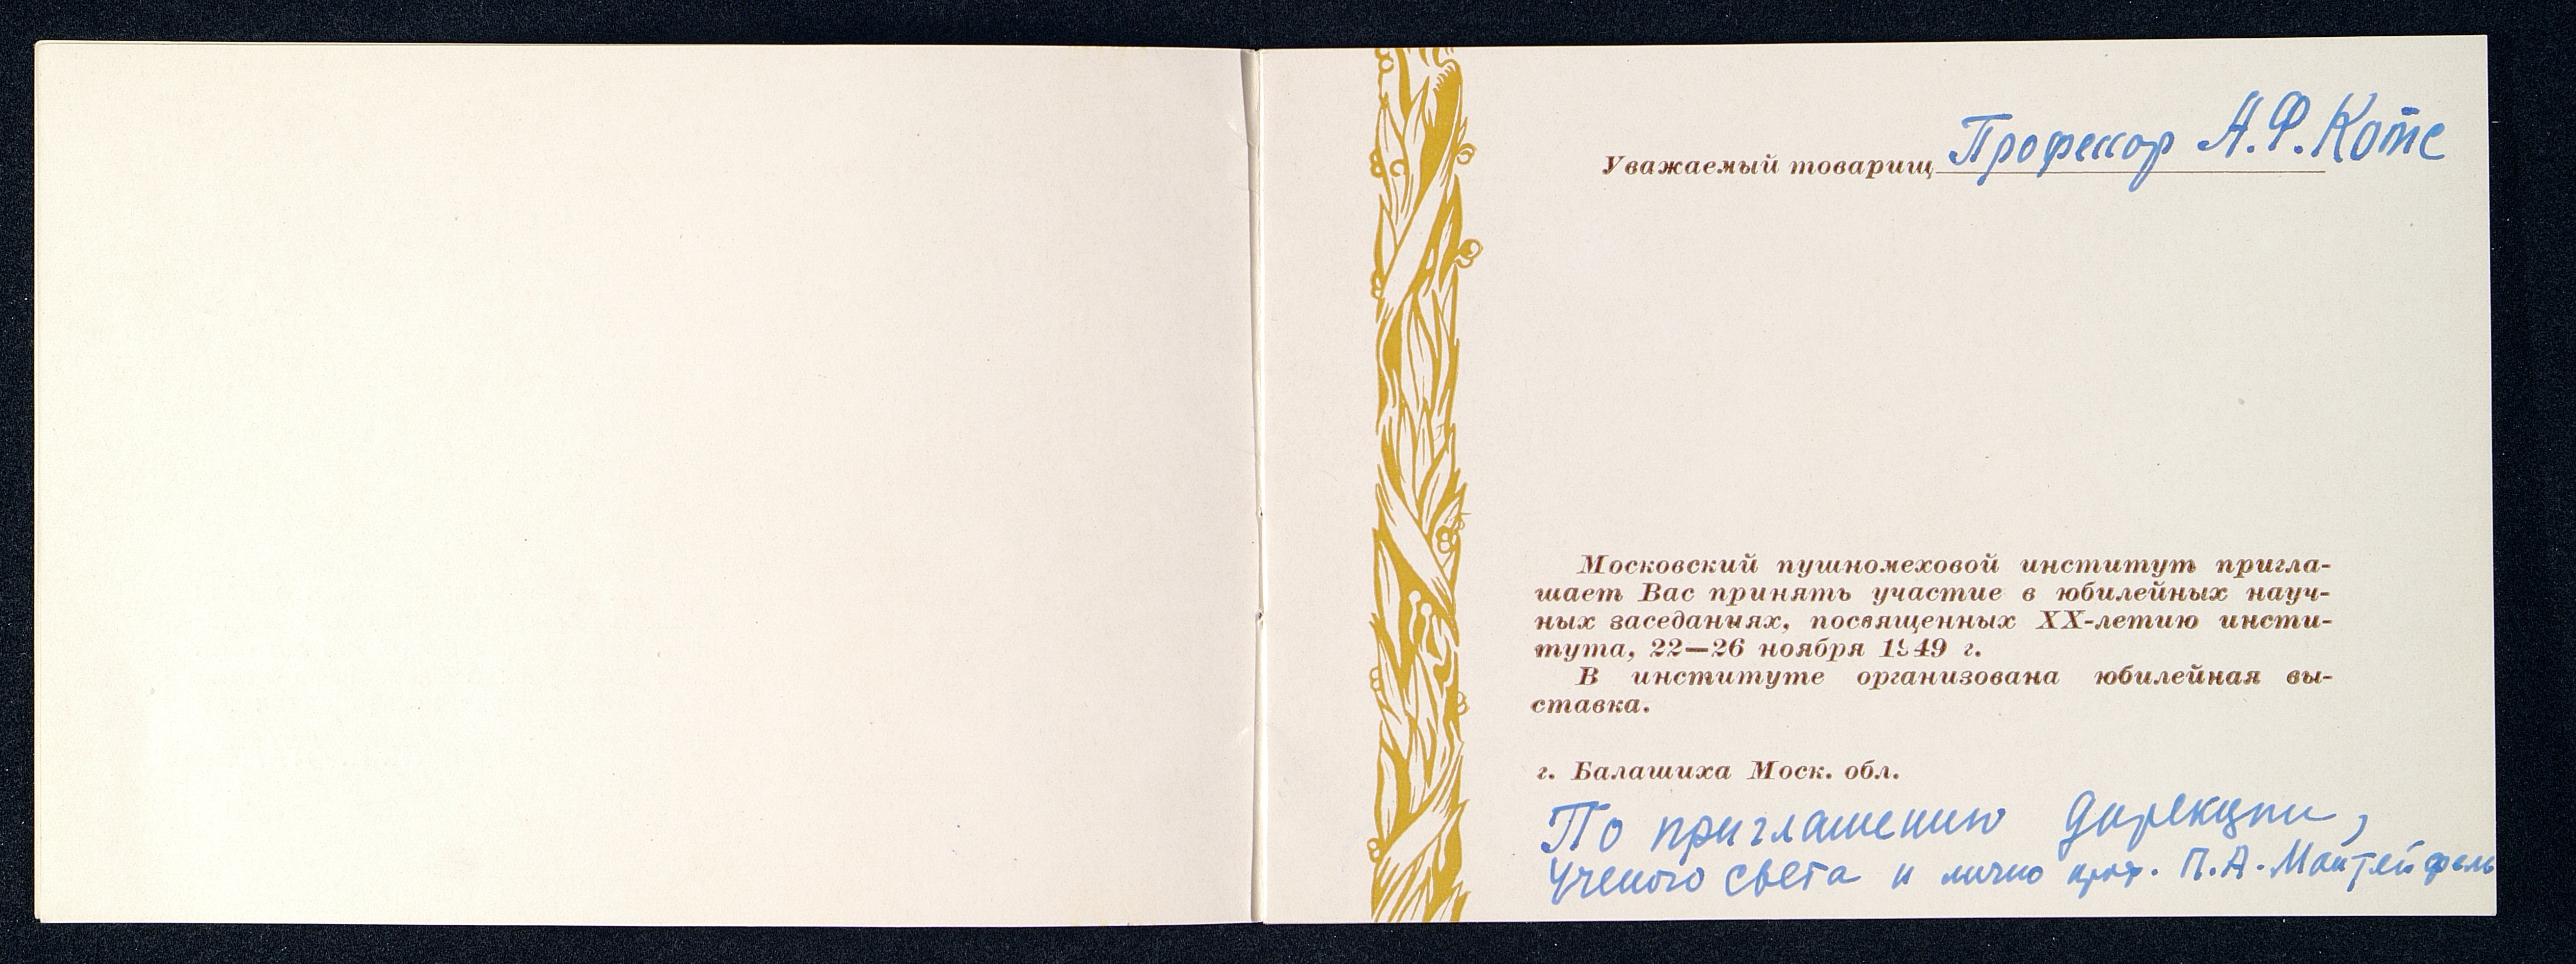 Уважаемый товарищ Профессор А.Ф.Котс
Московский пушномеховой институт пригла-
шает Вас принять участие в юбилейных науч-
ных заседаниях, посвященных XX-летию инсти-
тута, 22—26 ноября 1949 г.
В институте организована юбилейная вы-
ставка.
г. Балашиха Моск. обл.
По приглашению дирекции,
Ученого света и лично проф. П.А.Мантейфель